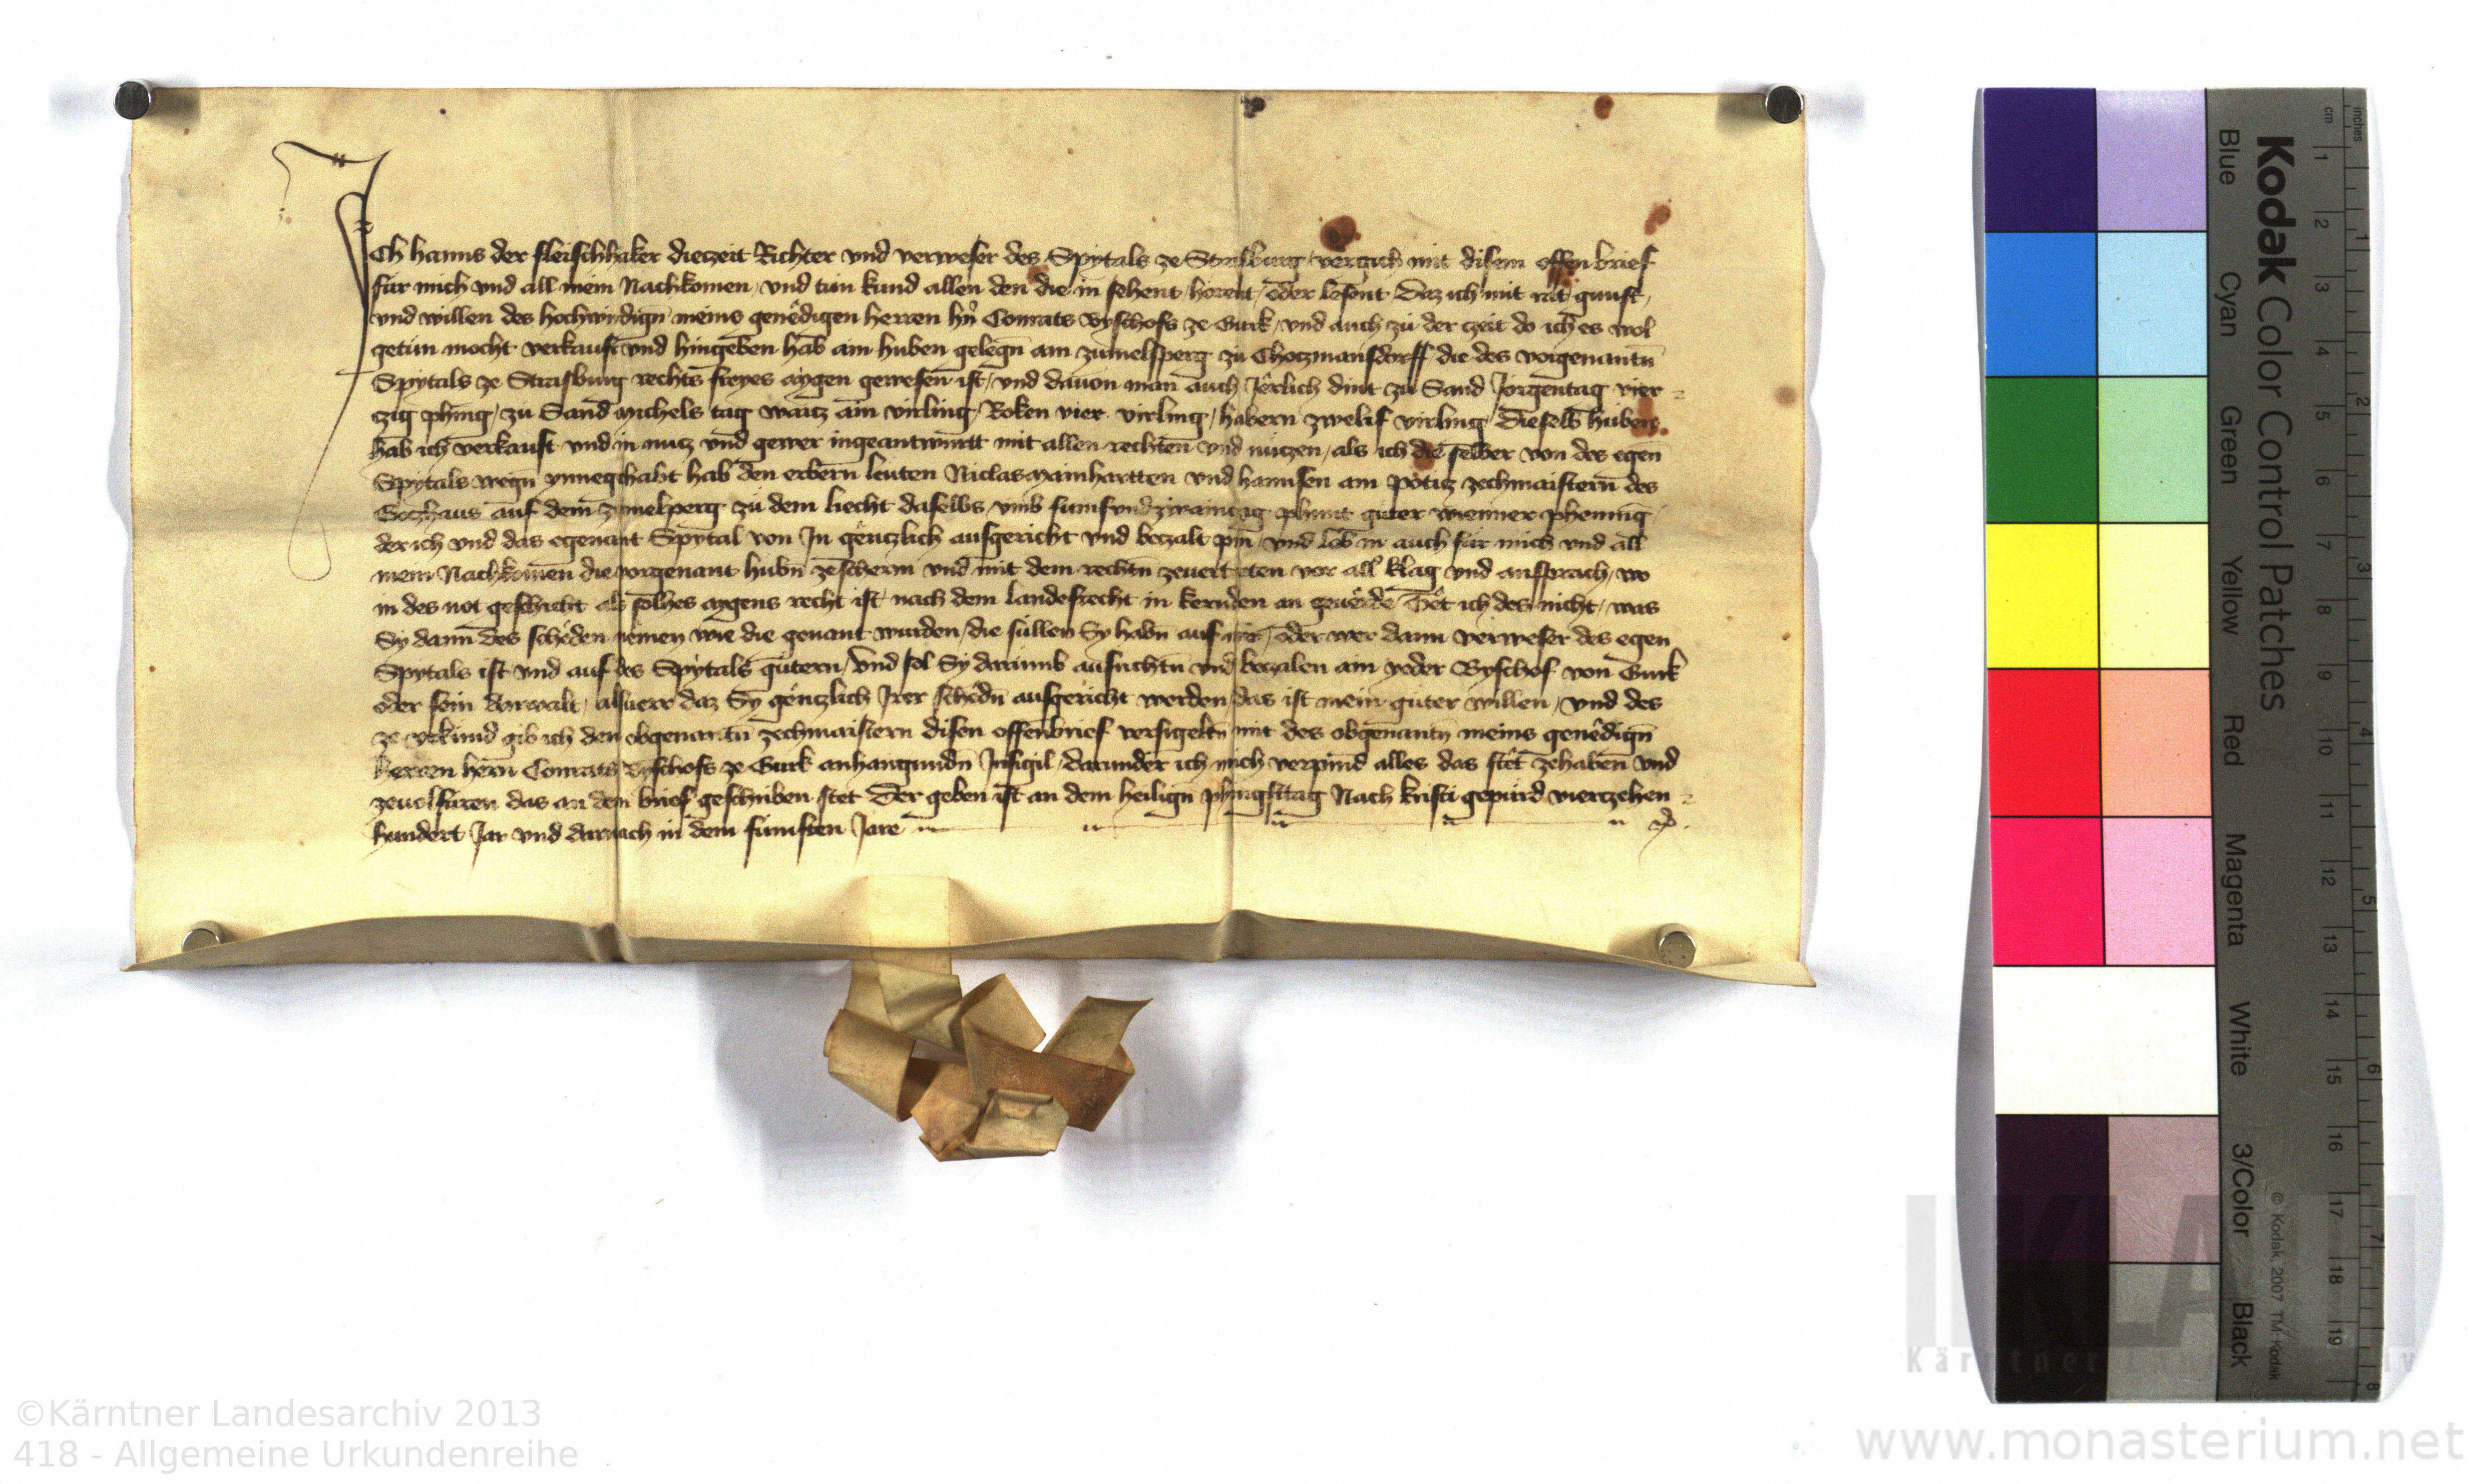 Ich hanns der fleischhaker dieczeit Richter vnd verweser des Spytals ze Strasburg vergich mit disem offen brief
für mich vnd all mein Nachkomen, vnd tün kund allen den die in sehent, horent, oder lesent Daz ich mit rat gunst,
vnd willen des hochwirdigñ meins genêdigen herren hñ Conrats Byschofs ze Gurk, vnd auch zü der czeit do ich es wol
getün mocht verkauft vnd hingeben hab ain hüben gelegñ am zümelsperg zü Choczmansdorff die des vorgenantñ
Spytals ze Strasburg rechts freyes aygen gewesen ist, vnd dauon man auch Jêrlich dint zü Sand Jörgentag vier
czig phing, zü Sand Michels tag waicz ain virling, Roken vier virling, habern zwelif virling Dieselb hüben
hab ich verkauft vnd in nucz vnd gewer ingeantwürtt mit allen rechten vnd nüczen, als ich die selber von des egen
Spytals wegñ ynnegehabt hab den erbern leüten Niclas Mainhartten vnd hannsen am Pötig zechmaistern des
Goczhaus auf dem zümelperg zü dem liecht daselbs, vmb fumfvndzwainczg phunt güter wienner phenning
der ich vnd das egenant Spytal von Jn gênczlich ausgericht vnd beczalt pin, vnd lob in auch für mich vnd all
mein Nachkomen die vorgenant hübñ ze scherm vnd mit dem rechtñ zeuertreten vor all klag vnd ansprach, wo
in des not geschicht als solhes aygens recht ist nach dem landesrecht in kernden an geuêrde Têt ich des nicht, was
Sy dann des schêden nêmen wie die genant wurden, die süllen Sy habñ auf mir, oder wer dann verweser des egen
Spytals ist vnd auf des Spytals gütern, Vnd sol Sy darümb ausrichtñ vnd beczalen ain yeder Byschof von Gurk
oder sein Anwalt, alsuerr daz Sy gênczlich Jrer schêdñ ausgericht werden, das ist mein güter willen, Vnd des
ze vrkünd gib ich den obgenantñ zechmaistern disen offenbrief versigeltñ mit des obgenantñ meins genêdigñ
herren hern Conrats Byschofs ze Gurk anhangundñ Jnsigil, darunder ich mich verpind alles das stêt zehaben vnd
zeuolfüren das an dem brief geschriben stet Der geben ist an dem heiligñ phingsttag Nach kristi gepürd vierczehen
hundert Jar vnd darnach in dem fümften Jare
Kodak Color Control Patches
Blue Cyan Green Yellow Red Magenta White 3/Color Black
© Kodak, 2007 TM: Kodak
inches 1 2 3 4 5 6 7 8
cm 1 2 3 4 5 6 7 8 9 10 11 12 13 14 15 16 17 18 19
KLA
©Kärntner Landesarchiv 2013
418 - Allgemeine Urkundenreihe
www.monasterium.net